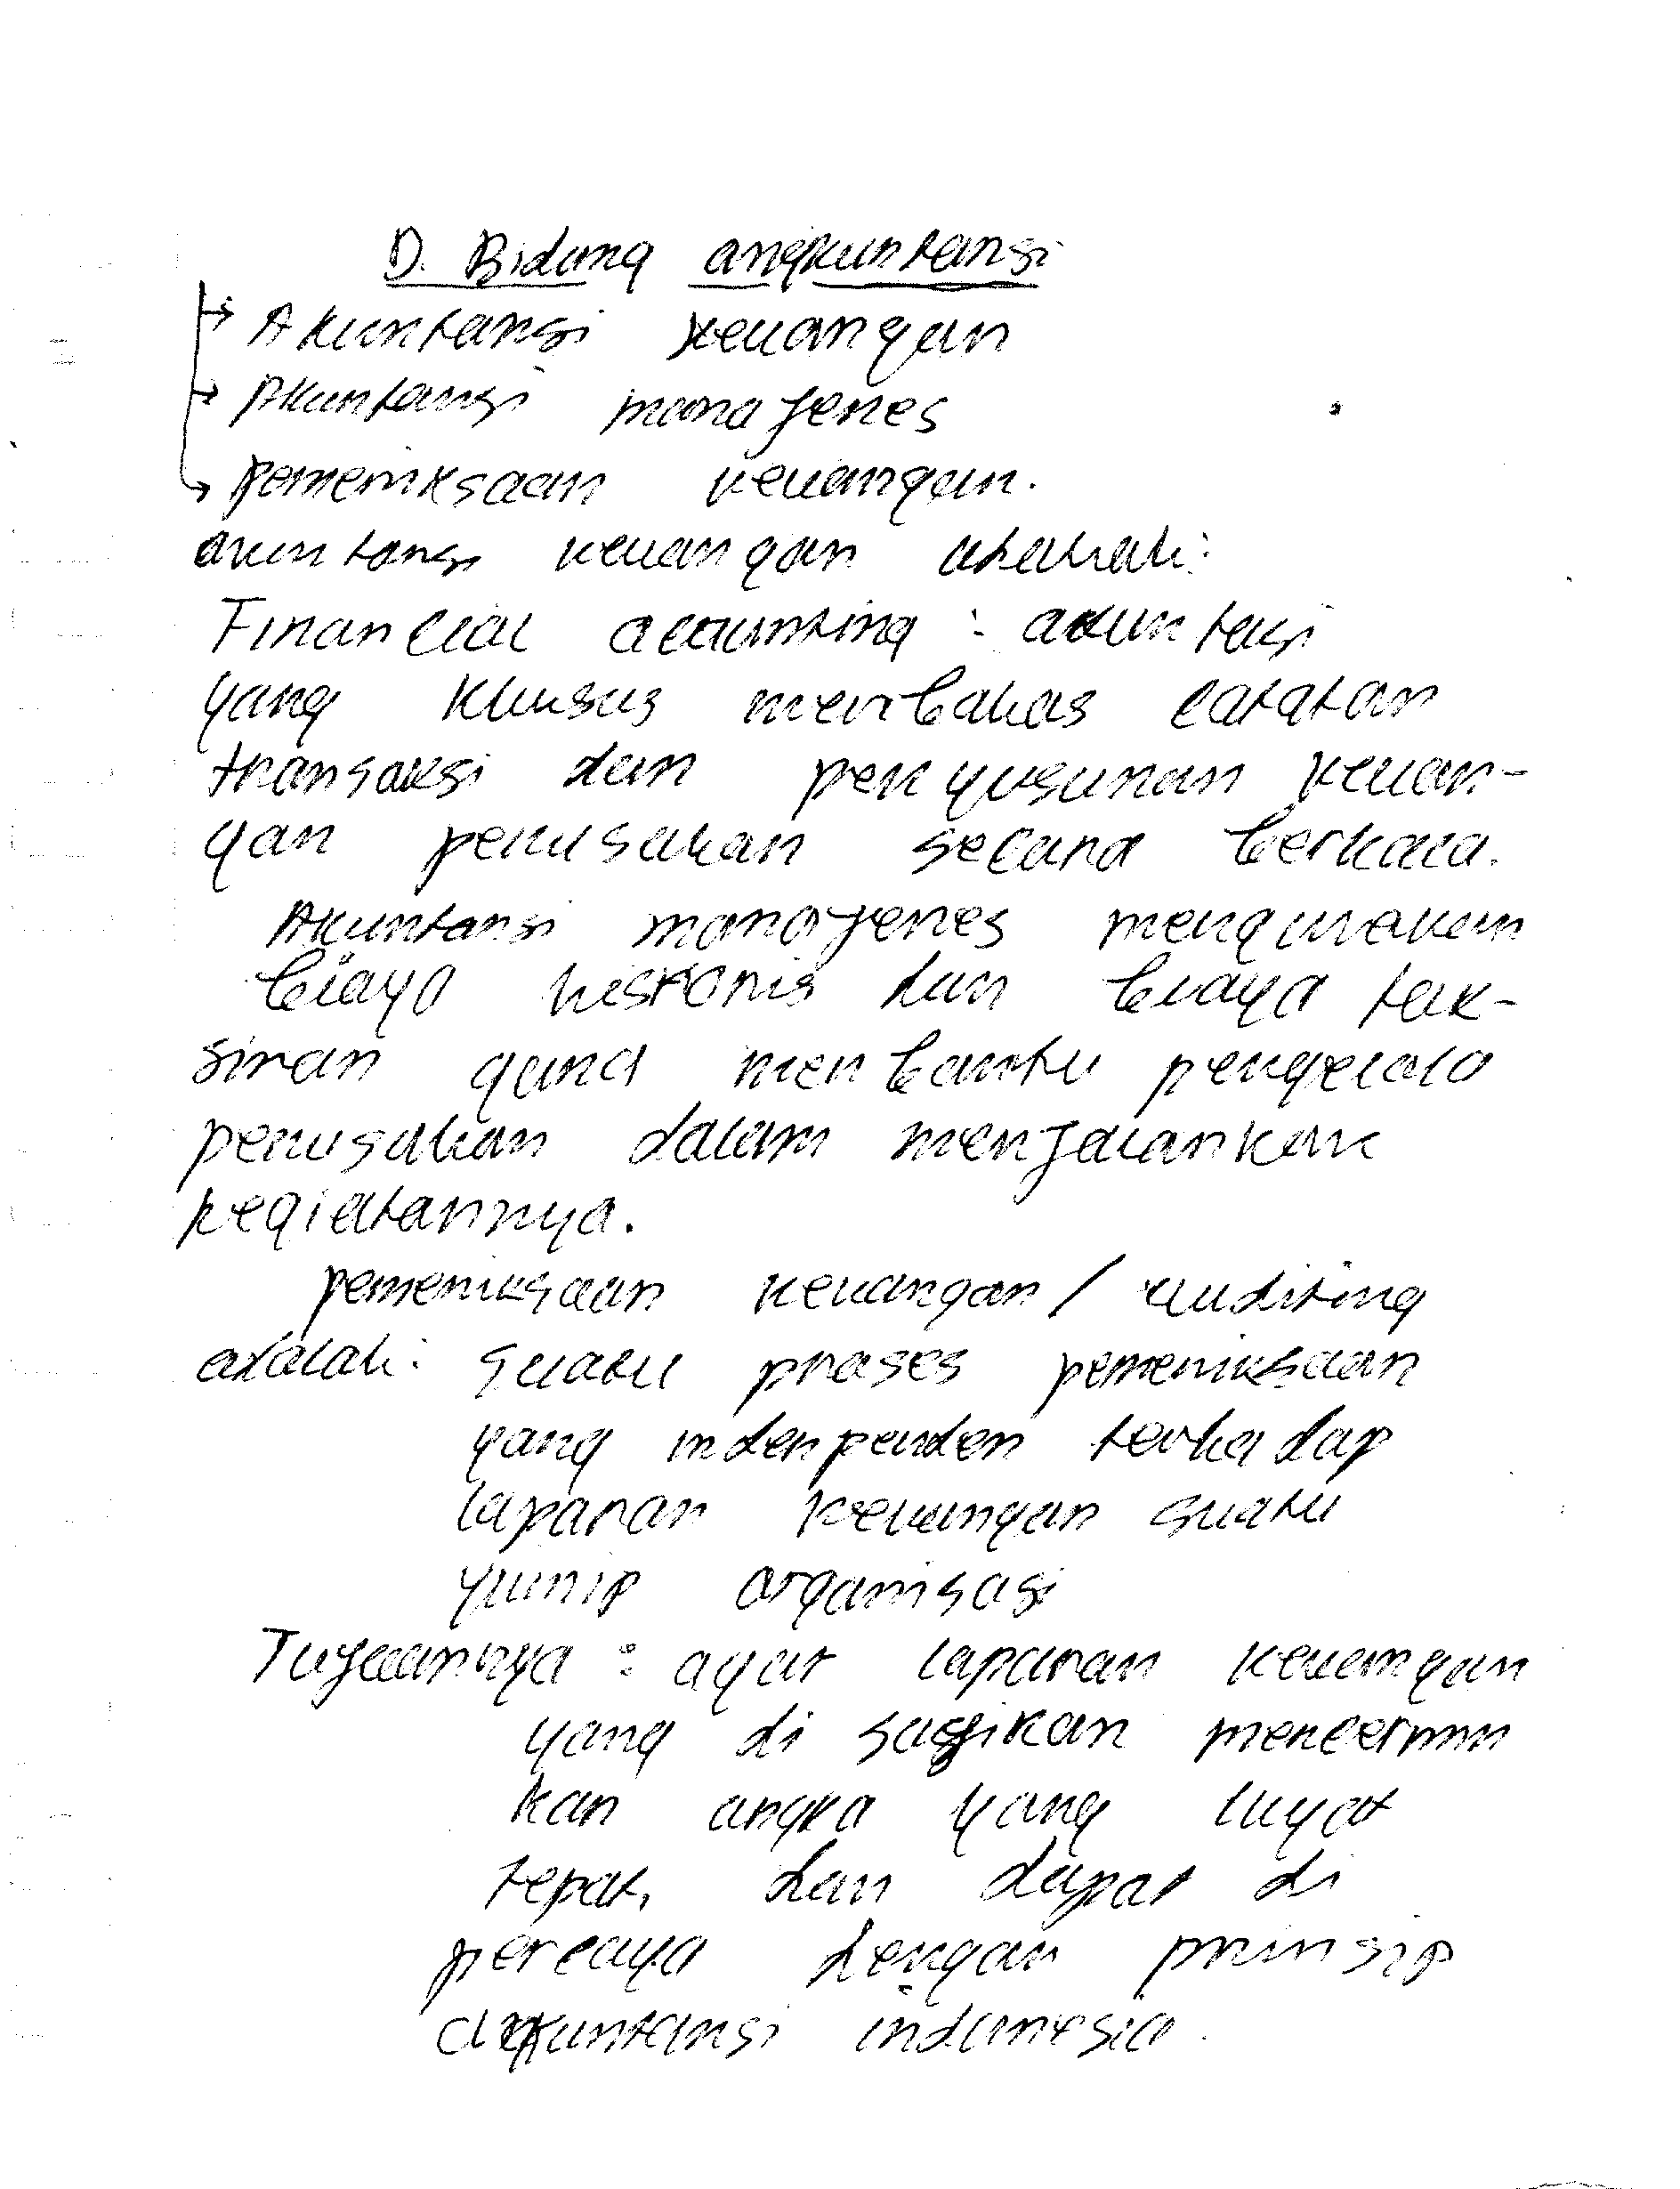 D. Bidang angkuntansi
→ Akuntansi keuangan
→ Akuntansi manajenes
→ pemeriksaan keuangan.
akuntansi keuangan adalah:
Financial accounting : akuntasi
yang khusus membahas catatan
transaksi dan penyusunan keuan-
gan perusahan secara berkala.
Akuntansi manajenes mengunakan
biaya historis dan biaya tak-
siran guna membantu pengelola
perusahan dalam menjalankan
kegiatannya.
pemeriksaan keuangan / auditing
adalah: suatu proses pemeriksaan
yang indenpenden terhadap
laporan keuangan suatu
organisasi
Tujuannya : agar laporan keuangan
yang di sajikan mencermin
kan angka yang
tepat, dan dapat di
percaya dengan prinsip
akuntansi indonesia.